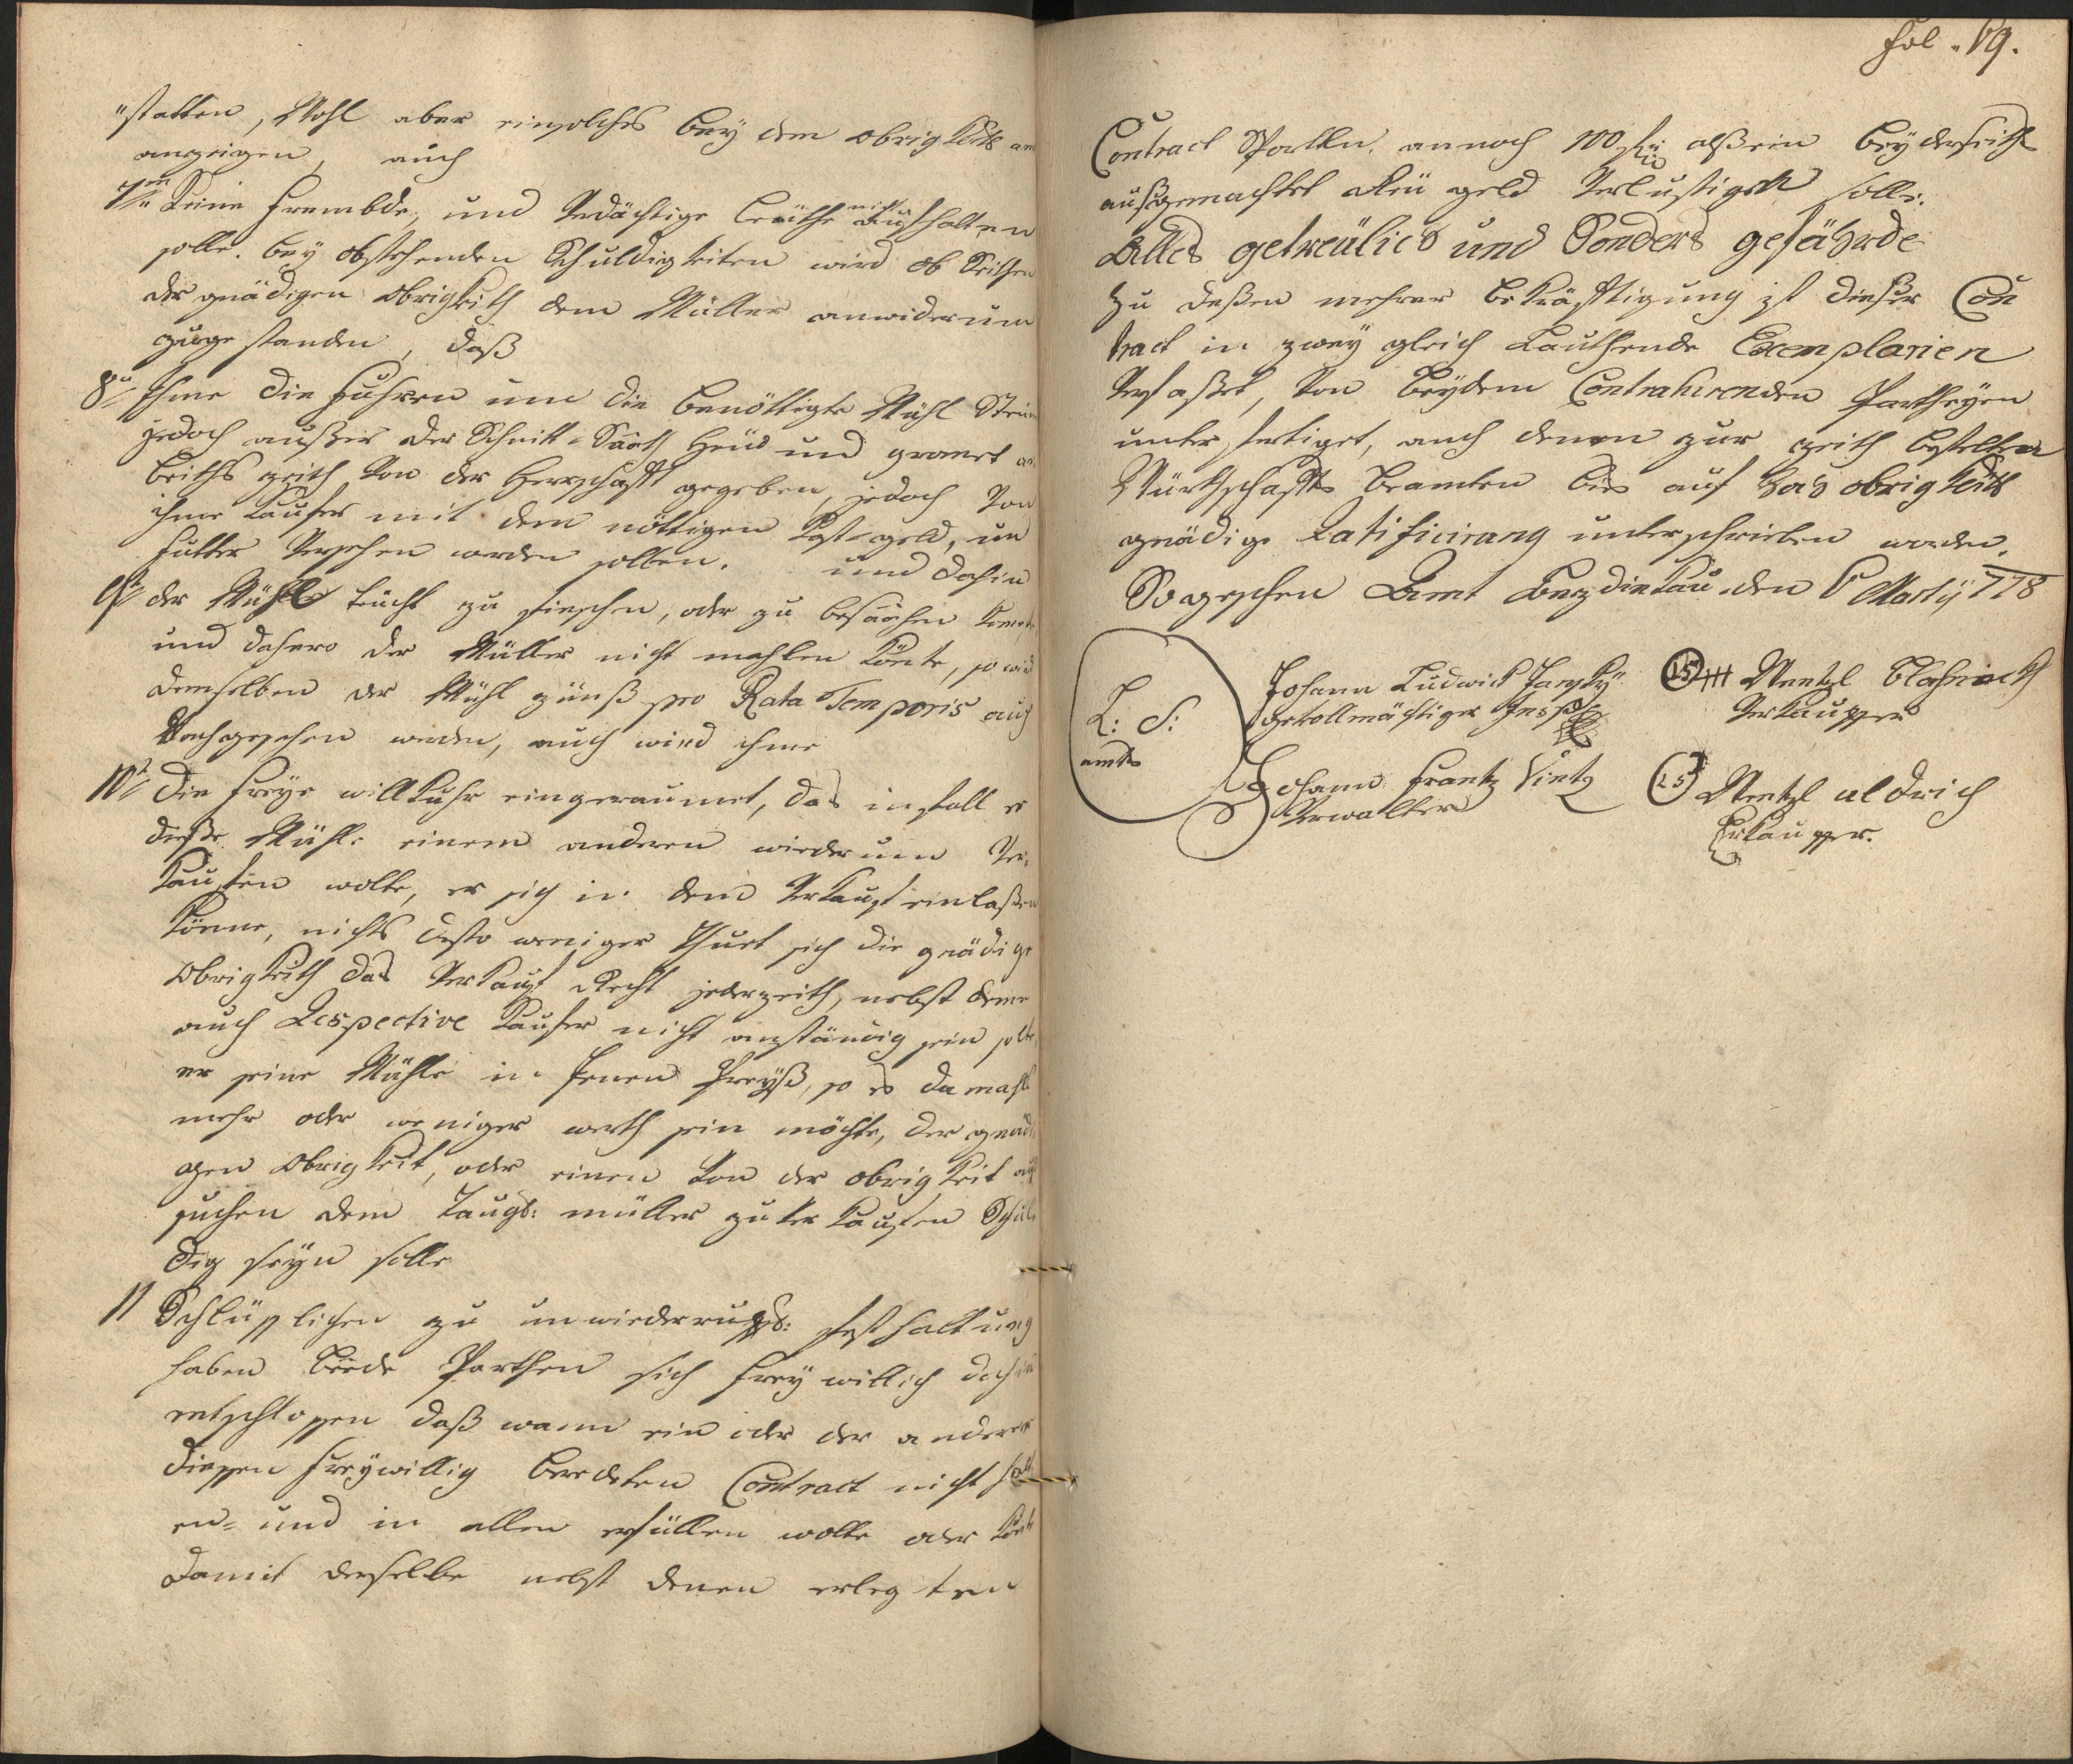 "statten, Wohl aber ein solches bey dem obrigkeits am
anzeigen, auch
7mo Keine Frembde, und Verdächtige Leüthe nicht Aufhalten
solle. bey obstehenden Schuldigkeiten wird ob Seithen
der gnädigen Obrigkeith dem Müller anwiderum
zugestanden, daß
8vo Ihme die Fuhren um die benöttigte Mühl Stein
jedoch ausser der Schnitt- Saath Heüd und gramet ar
beiths zeith von der Herrschafft gegeben, jedoch von
ihme Kaufer mit dem nöttigen Kost-geld, un
Futter Versehen werden sollen. und dafern
9no der Mühl teücht zu fieschen, oder zu besäen komete,
und dahero der Müller nicht mahlen könte, so wird
demselben der Mühl zünß pro Rata Temporis auch
Nachgesehen werden, auch wird ihme
10mo die Freye willkuhr eingeraumet, das im fall er
diese Mühl: einem anderen wiederum Ver-
kaufen wolte, er sich in dem Verkauf einlaßen
könne, nichts desto weniger Thuet sich die gnädige
Obrigkeith das Verkauf Recht jederzeith, nebst deme
auch Respective Kaufer nicht anständig sein solte,
er seine Mühle in Jenen Preyß, so es damahl
mehr oder weniger werth sein möchte, der gnädi
gen Obrigkeit, oder einen von der obrigkeit auf
suchen dem Taugl: müller zu verkaufen Schul
dig seyn solle
11 Schlüsslichen zu unwiederrufl: festhaltung
haben beede Parthen sich freywillich dahin
entschlossen daß wann ein oder der anderer
diessen freywillig beredeten Contract nicht halt
en- und in allen erfüllen wolte oder könte
damit derselbe nebst denen erlegten
Fol. 69.
Contract Spalten. annoch 100 fl alß ein beyderseiths
außgemachtes Reü geld Verlustiget solle.
Alles getreülich und Sonders gefährde
Zu deßen mehrer bekräfftigung ist dieser Con
tract in zwey gleich Lauthende Exemplarien
Verfasset, von beyden Contrahirenden Partheyen
unterfertiget, auch denen zur zeith bestelten
Würthschaffts Beamten bis auf das obrigkeits
gnädige Ratificirung unterschrieben worden.
So geschehen Amt den Martÿ 778
L: S:
amts
Johann Ludwick Jansky
bevollmächtiger Insp
Johann Frantz Vietz
Verwalter
LS +++ Wentzl
Verkaupffer
LS Wentzl aldrich
Erkaupffer.